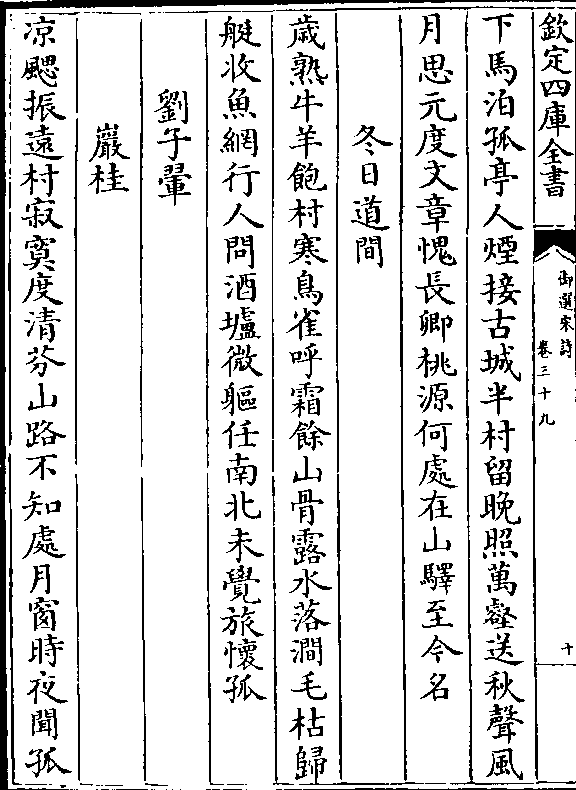 欽定四庫全書
御選宋詩
卷三十九
十
下馬泊孤亭人煙接古城半村留晚照萬壑送秋聲風
月思元度文章愧長卿桃源何處在山驛至今名
冬日道間
歲熟牛羊飽村寒鳥雀呼霜餘山骨露水落澗毛枯歸
艇收魚網行人問酒壚微軀任南北未覺旅懷孤
劉子翬
巖桂
凉颸振遠村寂寞度清芬山路不知處月窗時夜聞孤